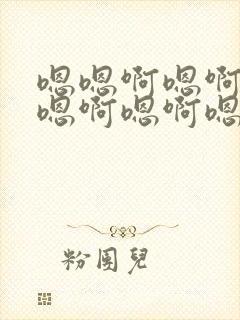 嗯嗯啊嗯啊
嗯啊嗯啊嗯
粉團兒